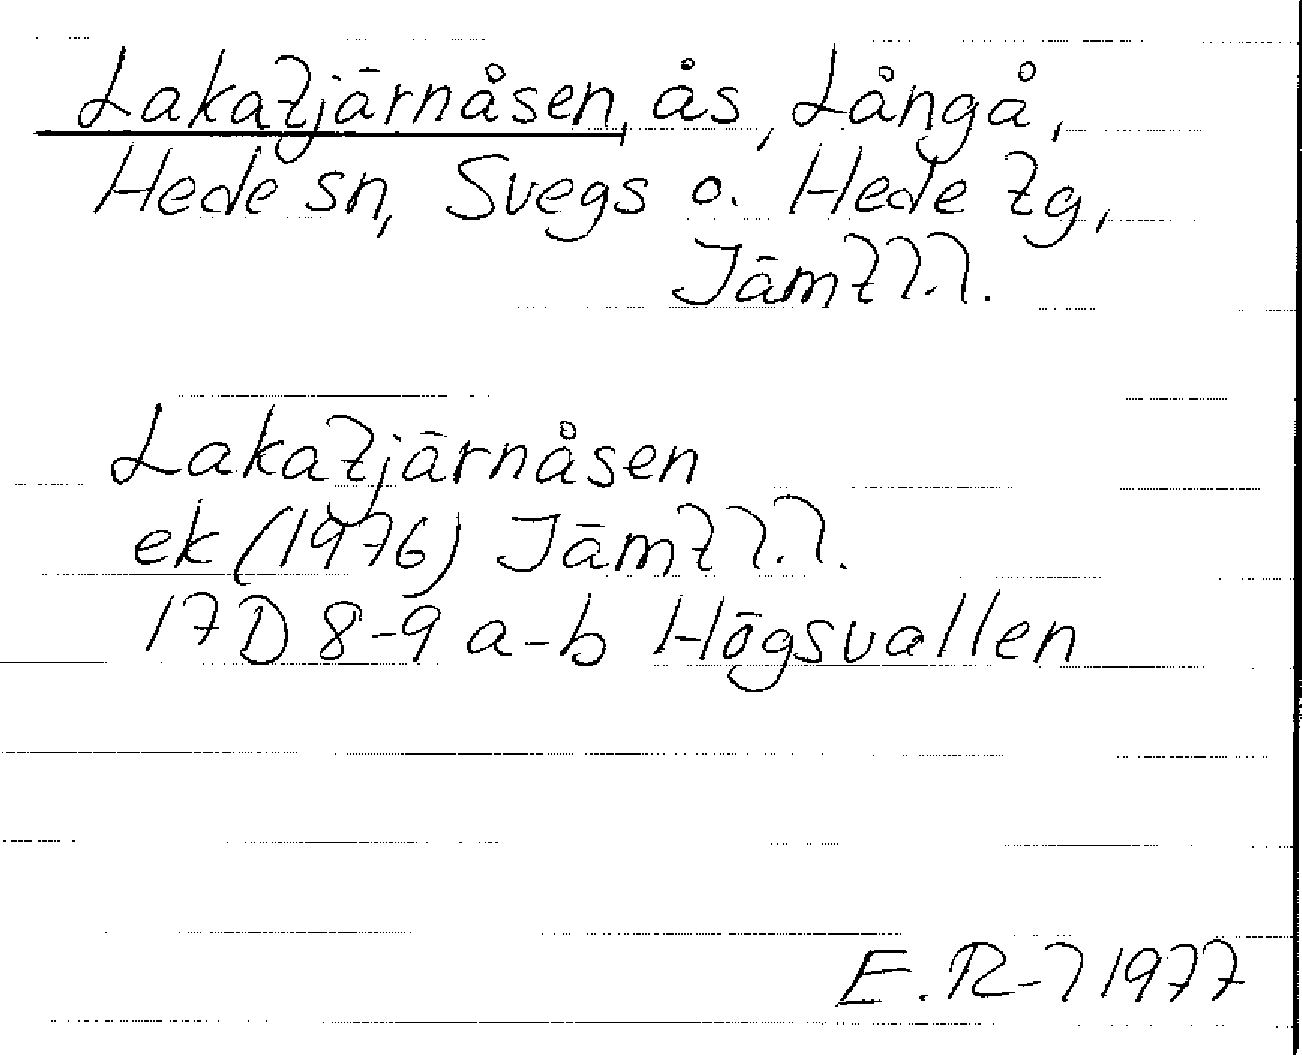 Lakatjärnåsen, ås, Långå,
Hede sn, Svegs o. Hede tg,
Jämtl.l.
Lakatjärnåsen
ek (1976) Jämtl.l.
17D 8-9 a-b Högsvallen
E. R-l 1977